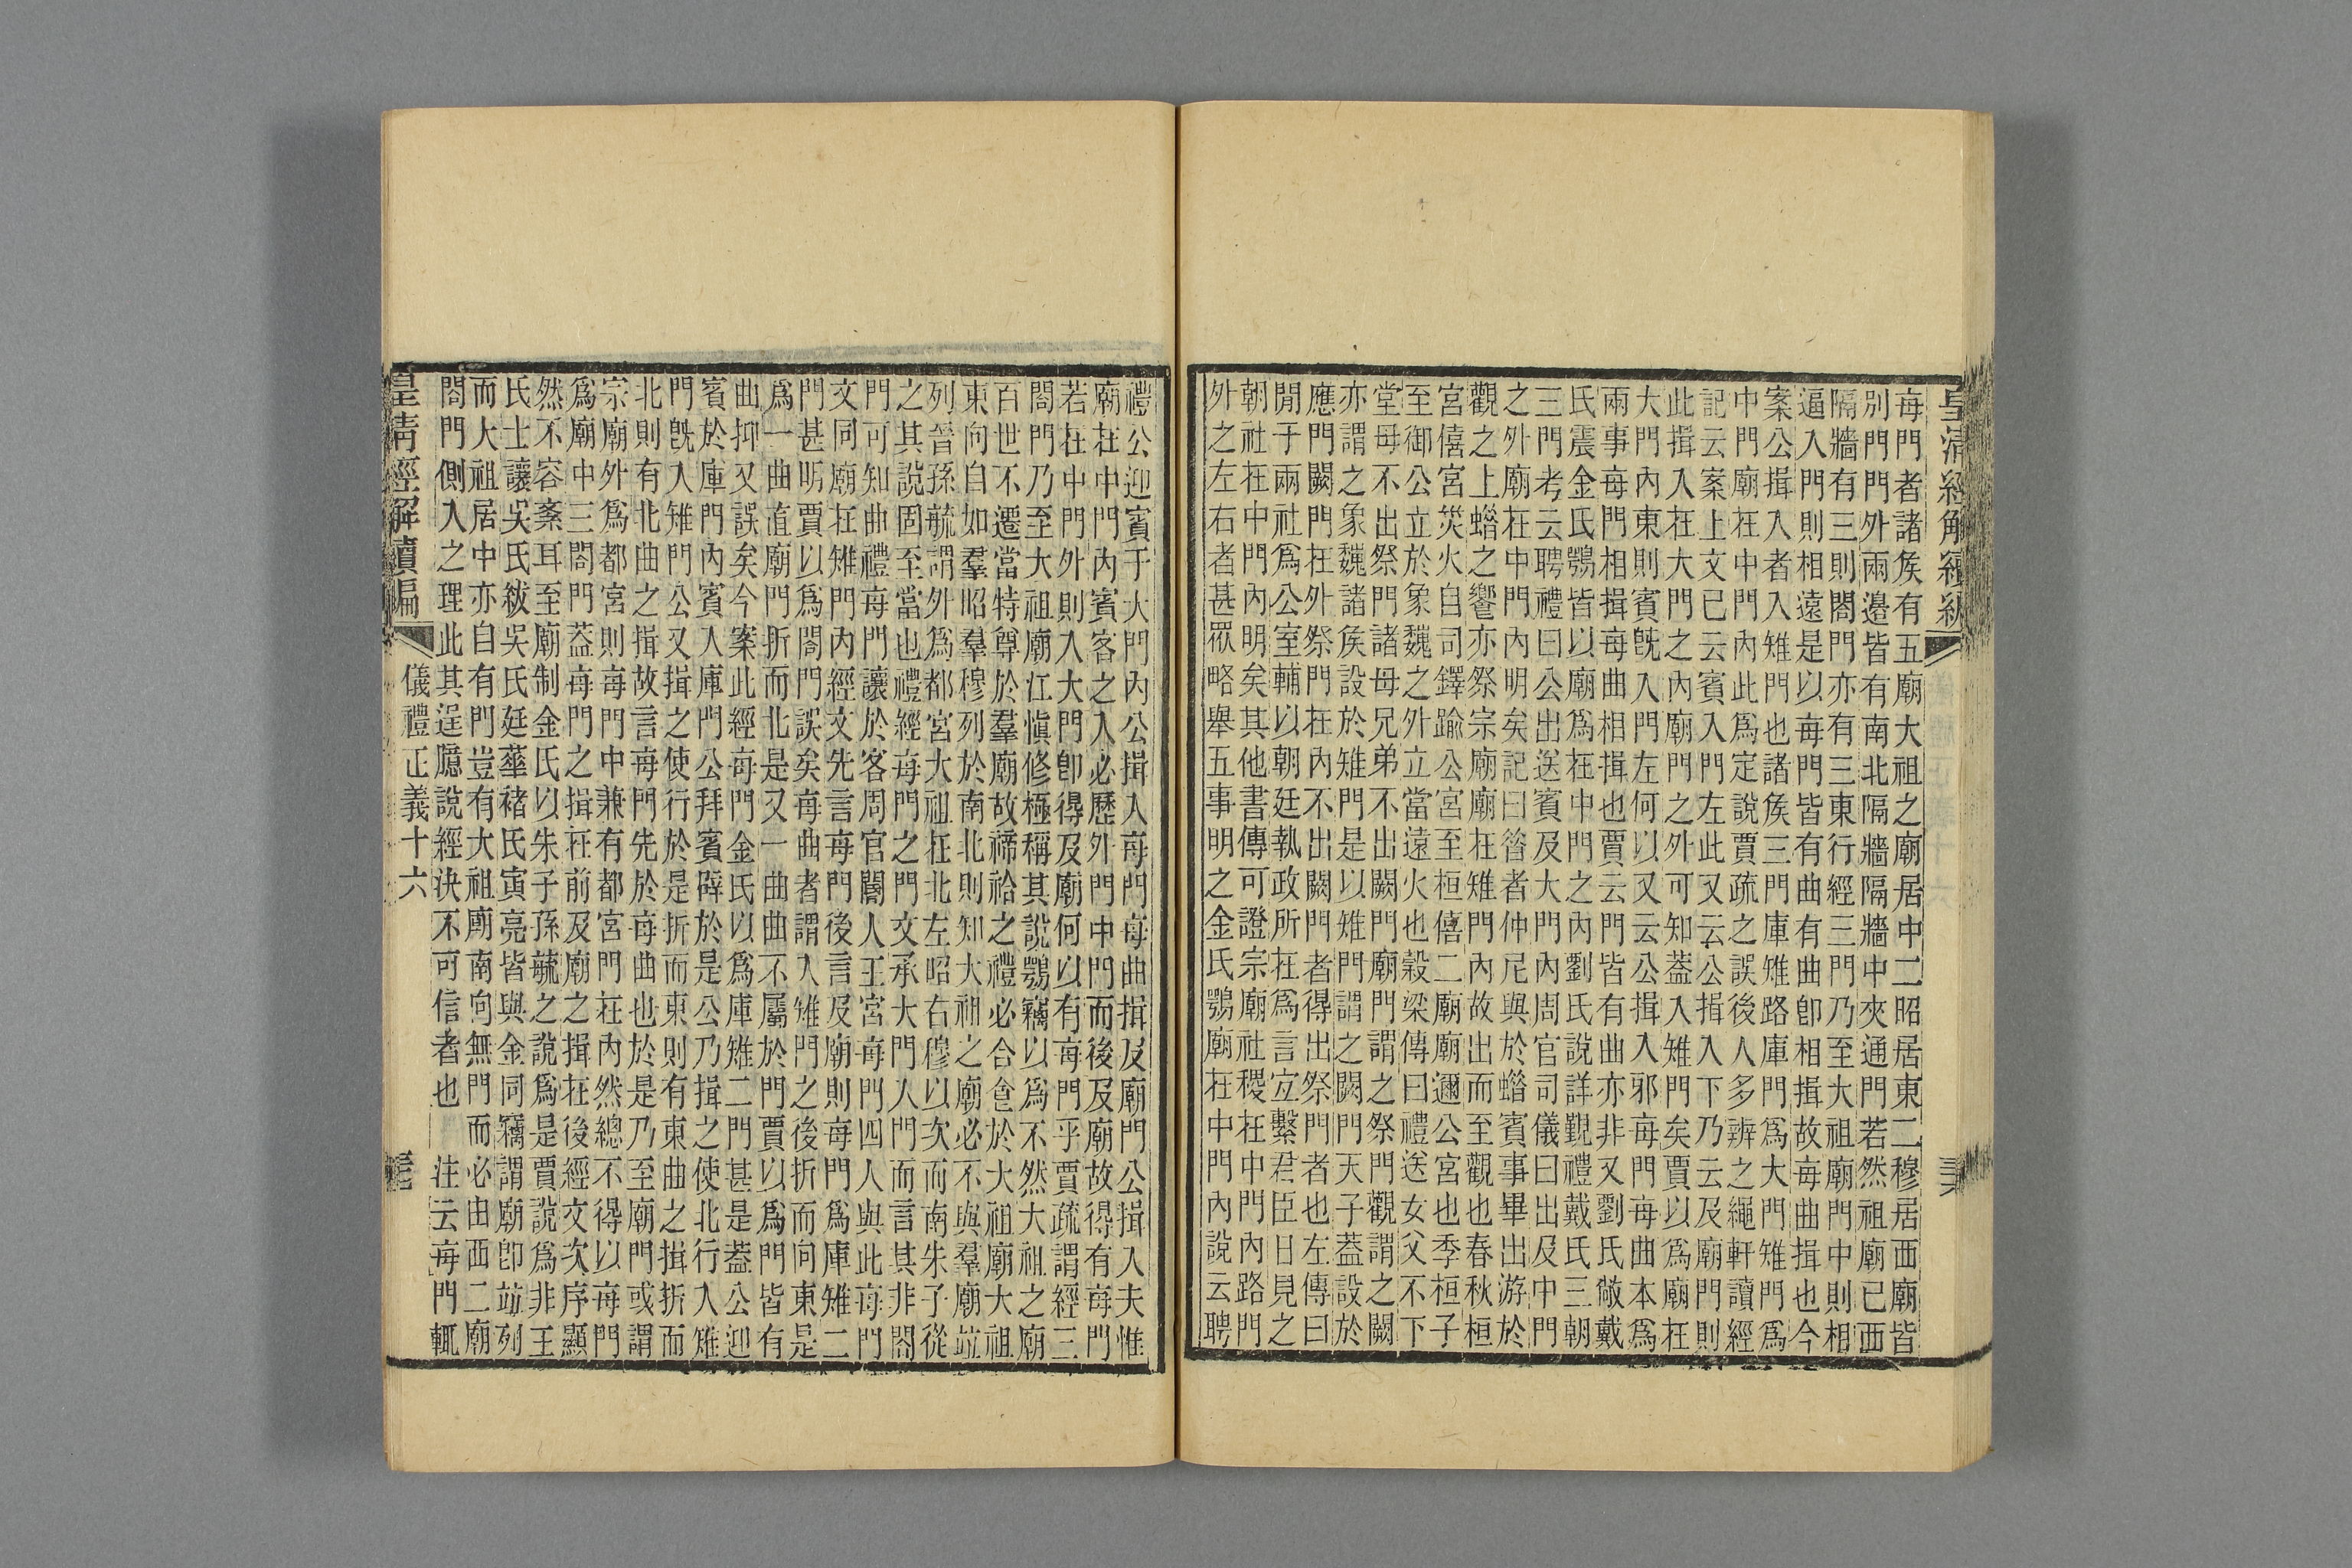 皇清經解續編
每門者諸矦有五廟大祖之廟居中二昭居東二穆居西廟皆
別門門外兩邊皆有南北隔牆隔牆中夾通門若然祖廟已西
隔牆有三則閤門亦有三東行經三門乃至大祖廟門中則相
逼入門則相遠是以每門皆有曲有曲卽相揖故每曲揖也今
案公揖入者入雉門也諸矦三門庫雉路庫門爲大門雉門爲
中門廟在中門內此爲定說賈疏之誤後人多辨之繩軒讀經
記云案上文已云賓入門左此又云公揖入下乃云及廟門則
此揖入在大門之內廟門之外可知蓋入雉門矣賈以爲廟在
大門內東則賓旣入門左何以又云公揖入邪每門每曲本爲
兩事每門相揖每曲相揖也賈云門皆有曲亦非又劉氏敞戴
氏震金氏鶚皆以廟爲在中門之內劉氏說詳覲禮戴氏三朝
三門考云聘禮曰公出送賓及大門內周官司儀曰出及中門
之外廟在中門內明矣記曰昔者仲尼與於蜡賓事畢出游於
觀之上蜡之饗亦祭宗廟廟在雉門內故出而至觀也春秋桓
宮僖宮災火自司鐸踰公宮至桓僖二廟廟邇公宮也季桓子
至御公立於象魏之外立當遠火也穀梁傳曰禮送女父不下
堂母不出祭門諸母兄弟不出闕門廟門謂之祭門觀謂之闕
亦謂之象魏諸矦設於雉門是以雉門謂之闕門天子蓋設於
應門闕門在外祭門在內不出闕門者得出祭門者也左傳曰
閒于兩社爲公室輔以朝廷執政所在爲言宐繫君臣日見之
朝社在中門內明矣其他書傳可證宗廟社稷在中門內路門
外之左右者甚眾略舉五事明之金氏鶚廟在中門內說云聘
禮公迎賓于大門內公揖入每門每曲揖及廟門公揖入夫惟
廟在中門內賓客之入必歷外門中門而後及廟故得有每門
若在中門外則入大門卽得及廟何以有每門乎賈疏謂經三
閤門乃至大祖廟江愼修極稱其說鶚竊以爲不然大祖之廟
百世不遷當特尊於羣廟故禘祫之禮必合食於大祖廟大祖
東向自如羣昭羣穆列於南北則知大祖之廟必不與羣廟竝
列晉孫毓謂外爲都宮大祖在北左昭右穆以次而南朱子從
之其說固至當也禮經每門之門文承大門入門而言其非閤
門可知曲禮每門讓於客周官閽人王宮每門四人與此每門
文同廟在雉門內經文先言每門後言及廟則每門爲庫雉二
門甚明賈以爲閤門誤矣每曲者謂入雉門之後折而向東是
爲一曲直廟門折而北是又一曲曲不屬於門賈以爲門皆有
曲抑又誤矣今案此經每門金氏以爲庫雉二門甚是蓋公迎
賓於庫門內賓入庫門公拜賓辟於是公乃揖之使北行入雉
門旣入雉門公又揖之使行於是折而東則有東曲之揖折而
北則有北曲之揖故言每門先於每曲也於是乃至廟門或謂
宗廟外爲都宮則每門中兼有都宮門在內然總不得以每門
爲廟中三閤門蓋每門之揖在前及廟之揖在後經文次序顯
然不容紊耳至廟制金氏以朱子孫毓之說爲是賈說爲非王
氏士讓吳氏紱吳氏廷華褚氏寅亮皆與金同竊謂廟卽竝列
而大祖居中亦自有門豈有大祖廟南向無門而必由西二廟
閤門側入之理此其逞臆說經決不可信者也　注云每門輒
皇清經解續編
儀禮正義十六